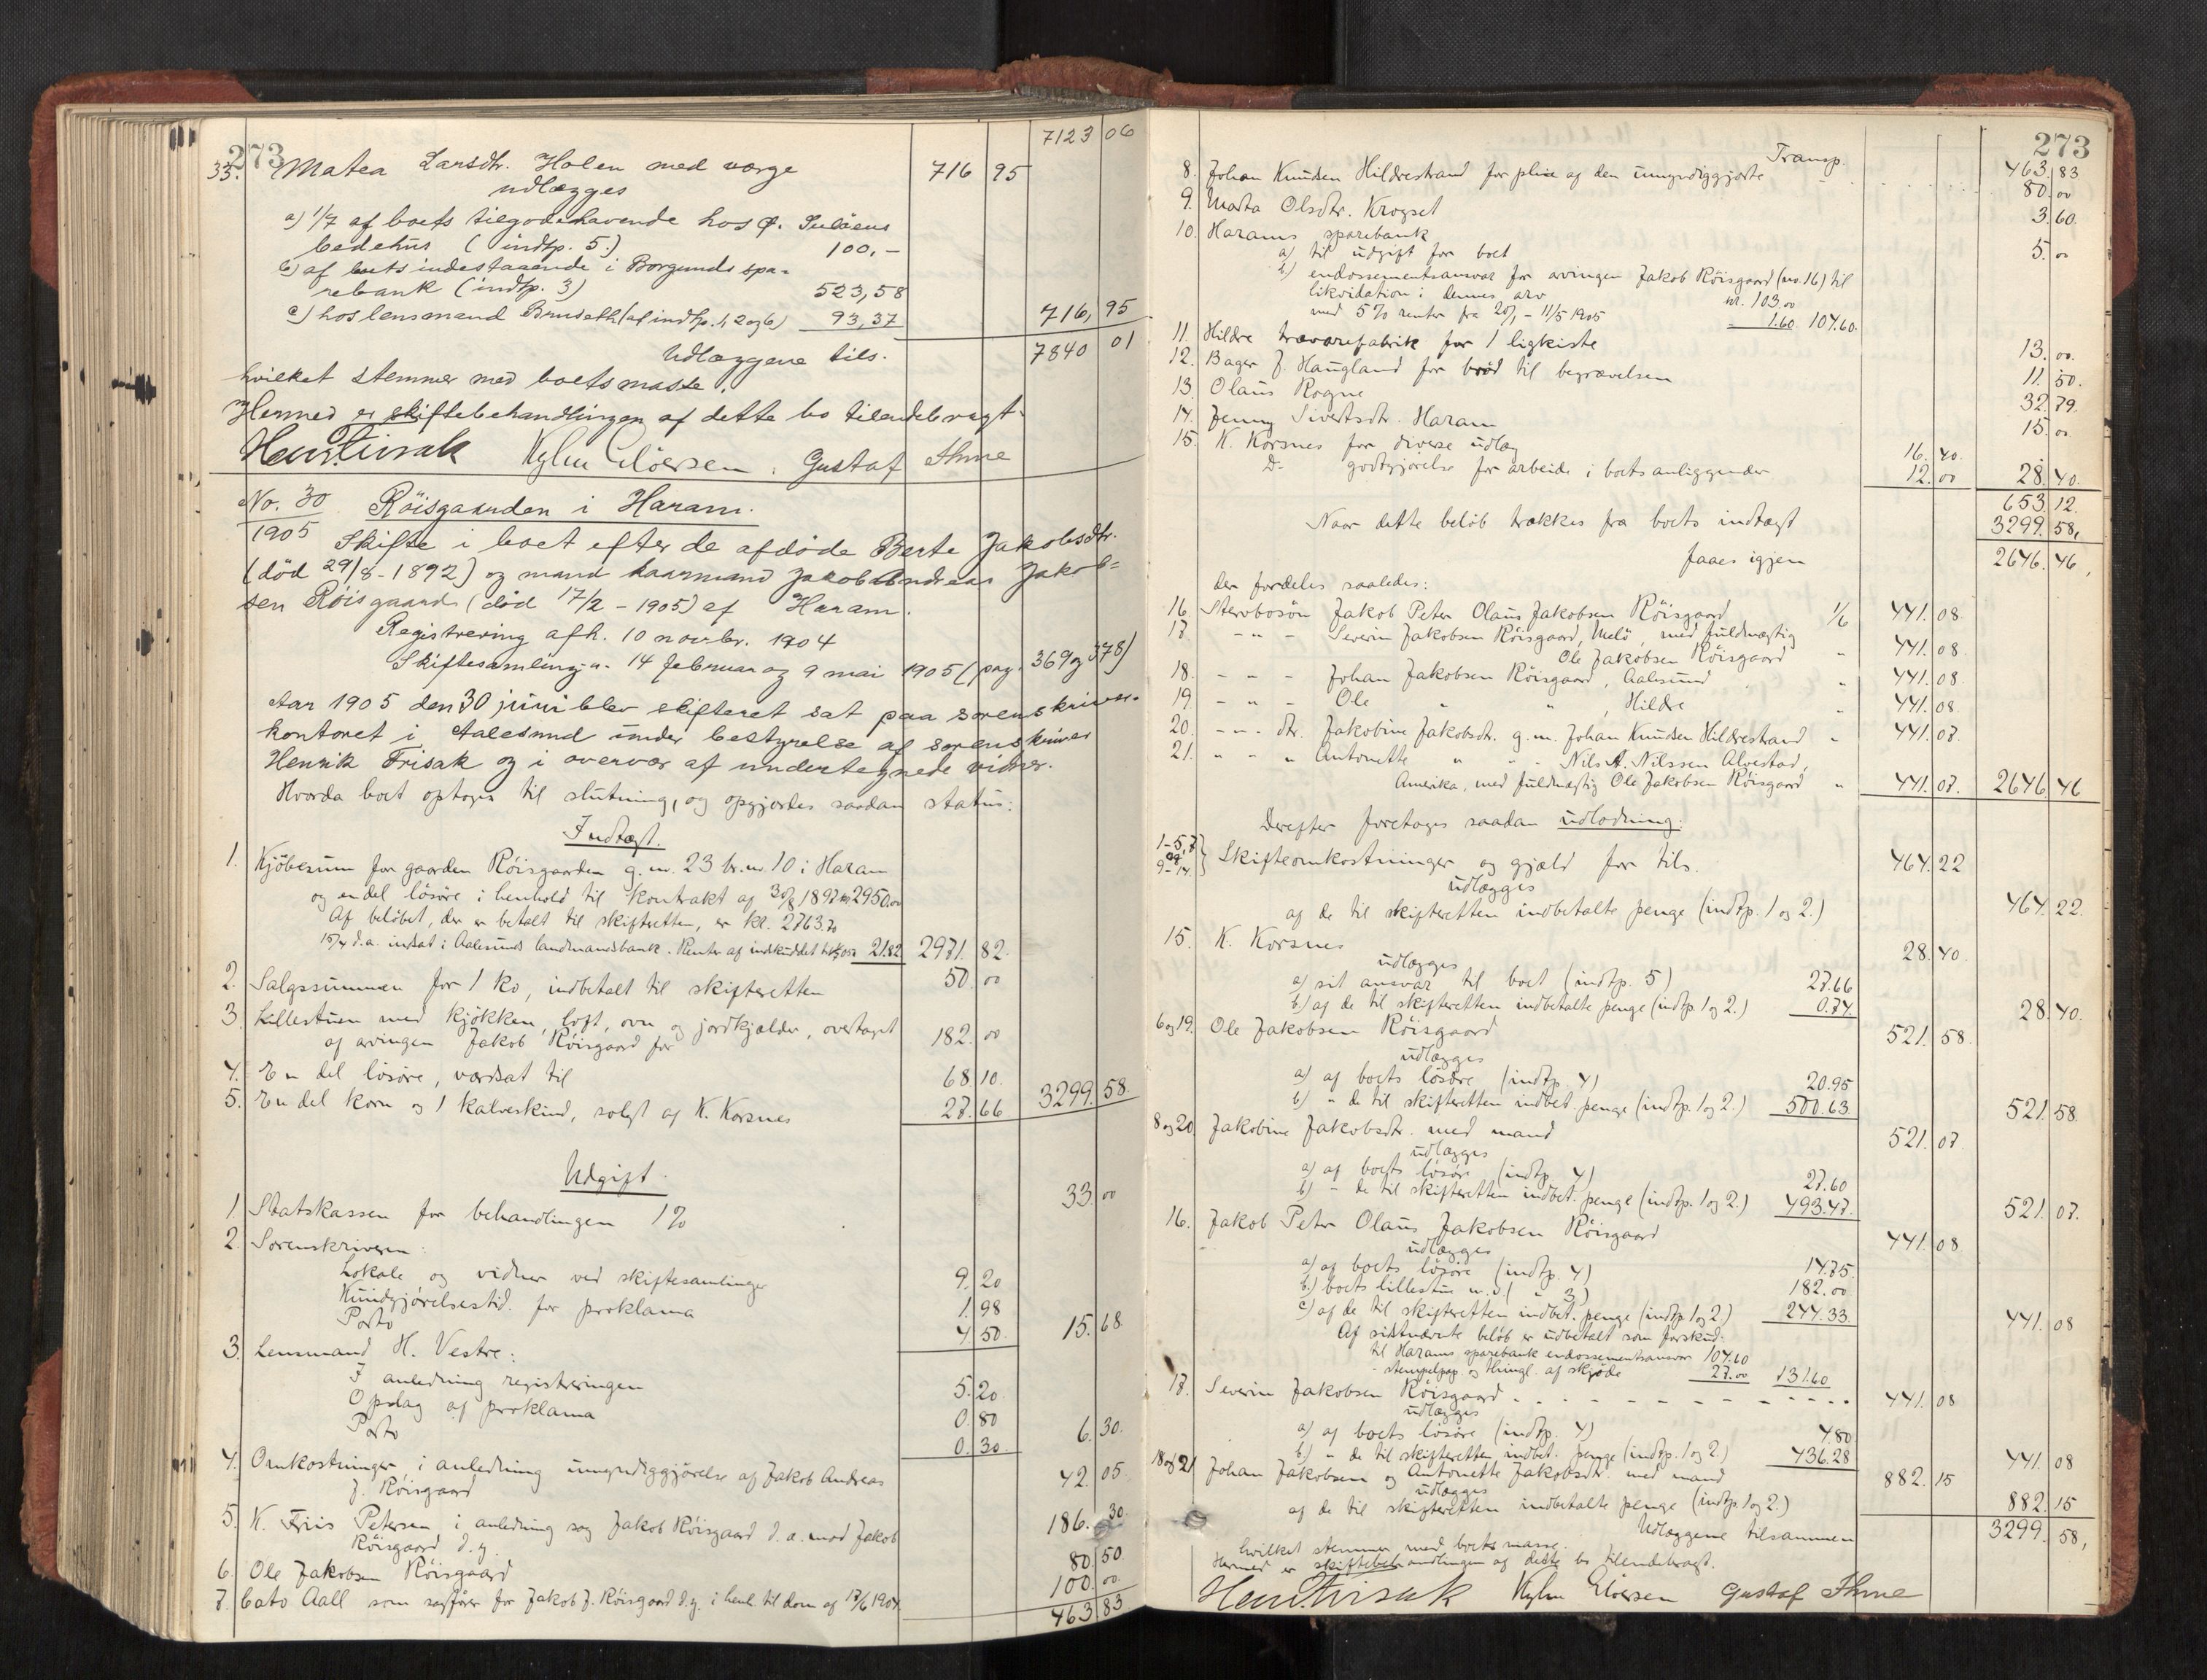 7123 06
273
33. Matea Larsdtr. Holen med værge 716 95
udlægges
a) 1/7 af boets tilgodehavende hos Ø. Sulöens
bedehus (indtp. 5.) 100,-
b) af boets indestaaende i Borgunds spa-
rebank (indtp. 3) 523,58
c) hos lensmand Brudseth (af indtp. 1, 2 og 6) 93,37 716,95
Udlæggene tils. 7840 01
hvilket stemmer med boets masse.
Hermed er skiftebehandlingen af dette bo tilendebragt.
Hen. Frisak Gustaf Ihme
No. 30 Röisgaarden i Haram.
1905 Skifte i boet efter de afdöde Berte Jakobsdtr.
(död 29/8-1892) og mand kaarmand Jakob Andreas Jakob=
sen Röisgaard (död 17/2-1905) af Haram.
Registrering afh. 10 novbr. 1904
Skiftesamling-"- 14 februar og 9 mai 1905 (pag. 369 og 378)
Aar 1905 den 30 juni blev skifteret sat paa sorenskriver-
kontoret i Aalesund under bestyrelse af sorenskriver
Henrik Frisak og i overvær af undertegnede vidner.
Hvorda boet optoges til slutning, og opgjordes saadan status:
Indtægt.
1. Kjöbesum for gaarden Röisgaarden g.no. 23 br.no. 10 i Haram
og endel lösöre i henhold til kontrakt af 30/8 1892 kr 2950.00
Af belöbet, der er betalt til skifteretten, er kr. 2763.70
15/4 d.a. indsat i Aalesunds landmandsbank. Renter af indskuddet 21.82 2971 82.
2. Salgssummen for 1 ko, indbetalt til skifteretten 50 00
3. Lillestuen med kjökken, loft, ovn og jordkjælder, overtaget
af arvingen Jakob Röisgaard for 182. 00
4. En del lösöre, værdsat til 68. 10.
5. En del korn og 1 kalveskind, solgt af K. Korsnes 27. 66 3299. 58.
Udgift.
1. Statskassen for behandlingen 1% 33. 00
2. Sorenskriveren:
Lokale og vidner ved skiftesamlinger 9. 20
Kundgjörelsestid. for proklama 1. 98
Porto 4 50. 15. 68
3. Lensmand H. Vestre:
I anledning registreringen 5. 20.
Opslag af proklama 0. 80
Porto 0. 30 6. 30.
4. Omkostninger i anledning umyndiggjörelse af Jakob Andreas
J. Röisgaard 42. 05
5. K. Friis Petersen i anledning sag Jakob Röisgaard d.æ. mod Jakob
Röisgaard d.y. 186. 30
6. Ole Jakobsen Röisgaard 80. 50.
7. Cato Aall som sagförer for Jakob J. Röisgaard d.y. i henh. til dom af 17/6 1904. 100. 00
463. 83
273
Transp. 463. 83
8. Johan Knudsen Hildrestrand for pleie af den umyndiggjorte 80. 00
9. Marta Olsdtr. Krogset 3. 60.
10. Harams sparebank
a) til udgift for boet 5. 00
b) endossementsansvar for arvingen Jakob Röisgaard (no. 16) til
likvidation i dennes arv kr. 103.00
med 5% renter fra 20/1 - 11/5 1905 - 1.60. 104.60.
11. Hildre trævarefabrik for 1 ligkiste 13. 00.
12. Bager J. Haugland for bröd til begravelsen 11. 50.
13. Olaus Rogne 32. 79.
14. Jenny Sivertsdtr. Haram 15. 00
15. K. Korsnes for diverse udlæg 16. 40.
Do godtgjörelse for arbeide i boets anliggender 12. 00 28. 40.
653. 12.
Naar dette belöb trækkes fra boets indtægt 3299. 58,
faaes igjen 2646. 46,
der fordeles saaledes:
16. Stervbosön Jakob Peter Olaus Jakobsen Röisgaard 1/6 441. 08.
17 -"- Severin Jakobsen Röisgaard, Ulelö, med fuldmægtig
Ole Jakobsen Röisgaard " 441. 08.
18. - " - Johan Jakobsen Röisgaard, Aalesund " 441. 08.
19. - " - Ole " " , Hildre " 441. 08.
20. -"- dtr. Jakobine Jakobsdtr. g.m. Johan Knudsen Hildrestrand " 441. 07.
21. " - " Antonette " " - Nils A. Nilssen Alvestad,
Amerika, med fuldmægtig Ole Jakobsen Röisgaard " 441. 07. 2646. 46
Derefter foretages saadan udlodning:
1-5, 7
og
9-14. } Skifteomkostninger og gjæld for tils. 464. 22
udlægges
af de til skifteretten indbetalte penge (indtp. 1 og 2.) 464. 22.
15. K. Korsnes 28. 40.
udlægges
a) sit ansvar til boet (indtp. 5) 27.66
b) af de til skifteretten indbetalte penge (indtp 1 og 2.) 0.74. 28. 40.
6 og 19. Ole Jakobsen Röisgaard 521. 58.
udlægges
a) af boets lösöre (indtp. 4) 20.95
b) " de til skifteretten indbet. penge (indtp. 1 og 2.) 500.63. 521. 58.
8 og 20. Jakobine Jakobsdtr. med mand 521. 07.
udlægges
a) af boets lösöre (indtp. 4) 27.60
b) - de til skifteretten indbet. penge (indtp. 1 og 2.) 493.47. 521. 07.
16. Jakob Peter Olaus Jakobsen Röisgaard 441. 08
udlægges
a) af boets lösöre (indtp. 4) 14.75.
b) boets lillestue m.v. ( " 3) 182.00
c) af de til skifteretten indbet. penge (indtp 1 og 2.) 244.33. 441. 08
Af sidstnævnte belöb er udbetalt som forskud:
til Harams sparebank endossementsansvar 104.60
- stempelpap. og thingl. af skjöde 27.00 131.60
17. Severin Jakobsen Röisgaard 441. 08
udlægges
a) af boets lösöre (indtp. 4) 4.80
b) " de til skifteretten indbet. penge (indtp. 1 og 2.) 436.28 441. 08
18 og 21 Johan Jakobsen og Antonette Jakobsdtr. med mand 882. 15
udlægges
af de til skifteretten indbetalte penge (indtp. 1 og 2.) 882. 15
Udlæggene tilsammen 3299. 58,
hvilket stemmer med boets masse.
Hermed er skiftebehandlingen af dette bo tilendebragt.
Hen. Frisak Gustaf Ihme